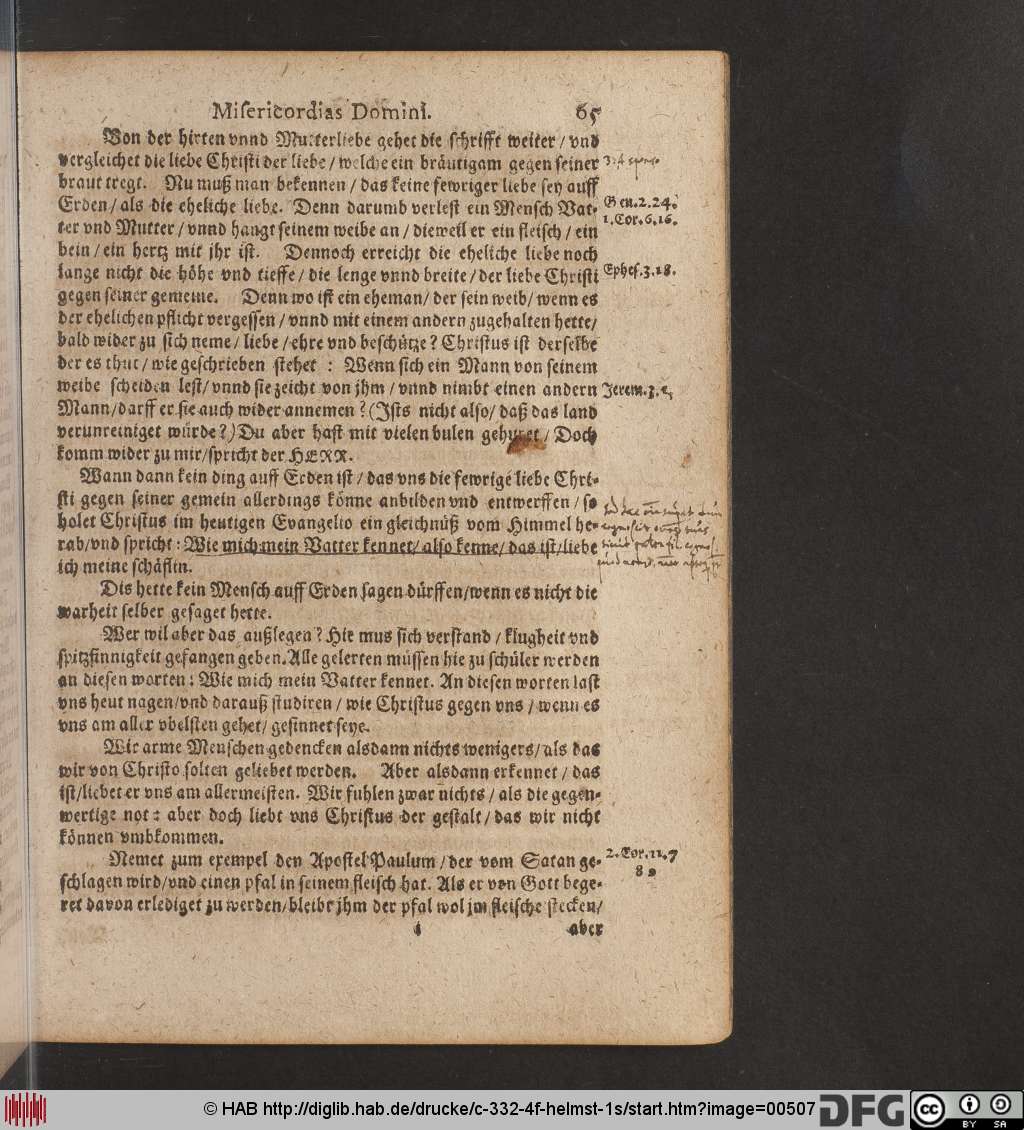 Misericordias Domini. 65
Von der hirten vnnd Mutterliebe gehet die schrifft weiter / vnd
vergleichet die liebe Christi der liebe / welche ein bräutigam gegen seiner
braut tregt. Nu muß man bekennen / das keine fewriger liebe sey auff
Erden / als die eheliche liebe. Denn darumb verlest ein Mensch Vat-
Gen. 2. 24.
ter vnd Mutter / vnnd hangt seinem weibe an / dieweil er ein fleisch / ein
1. Cor. 6. 16.
bein / ein hertz mit jhr ist. Dennoch erreicht die eheliche liebe noch
lange nicht die höhe vnd tieffe / die lenge vnnd breite / der liebe Christi
Ephes. 3. 18.
gegen seiner gemeine. Denn wo ist ein eheman / der sein weib / wenn es
der ehelichen pflicht vergessen / vnnd mit einem andern zugehalten hette /
bald wider zu sich neme / liebe / ehre vnd beschütze? Christus ist derselbe
der es thut / wie geschrieben stehet : Wenn sich ein Mann von seinem
weibe scheiden lest / vnnd sie zeicht von jhm / vnnd nimbt einen andern
Jerem. 3. 1.
Mann / darff er sie auch wider annemen? (Ists nicht also / daß das land
verunreiniget würde?) Du aber hast mit vielen bulen gehuret / Doch
komm wider zu mir / spricht der HERR.
Wann dann kein ding auff Erden ist / das vns die fewrige liebe Chri-
sti gegen seiner gemein allerdings könne anbilden vnd entwerffen / so
holet Christus im heutigen Evangelio ein gleichnüß vom Himmel he-
rab / vnd spricht : Wie mich mein Vatter kennet / also kenne / das ist / liebe
ich meine schäflin.
Dis hette kein Mensch auff Erden sagen dürffen / wenn es nicht die
warheit selber gesaget hette.
Wer wil aber das außlegen? Hie mus sich verstand / klugheit vnd
spitzfinnigkeit gefangen geben. Alle gelerten müssen hie zu schüler werden
an diesen worten : Wie mich mein Vatter kennet. An diesen worten last
vns heut nagen / vnd darauß studiren / wie Christus gegen vns / wenn es
vns am aller vbelsten gehet / gesinnet seye.
Wir arme Menschen gedencken alsdann nichts wenigers / als das
wir von Christo solten geliebet werden. Aber alsdann erkennet / das
ist / liebet er vns am allermeisten. Wir fuhlen zwar nichts / als die gegen-
wertige not : aber doch liebt vns Christus der gestalt / das wir nicht
können vmbkommen.
Nemet zum exempel den Apostel Paulum / der vom Satan ge-
2. Cor. 11. 7
8.
schlagen wird / vnd einen pfal in seinem fleisch hat. Als er von Gott bege-
ret davon erlediget zu werden / bleibt jhm der pfal wol im fleische stecken /
i aber
© HAB http://diglib.hab.de/drucke/c-332-4f-helmst-1s/start.htm?image=00507
DFG
cc BY SA